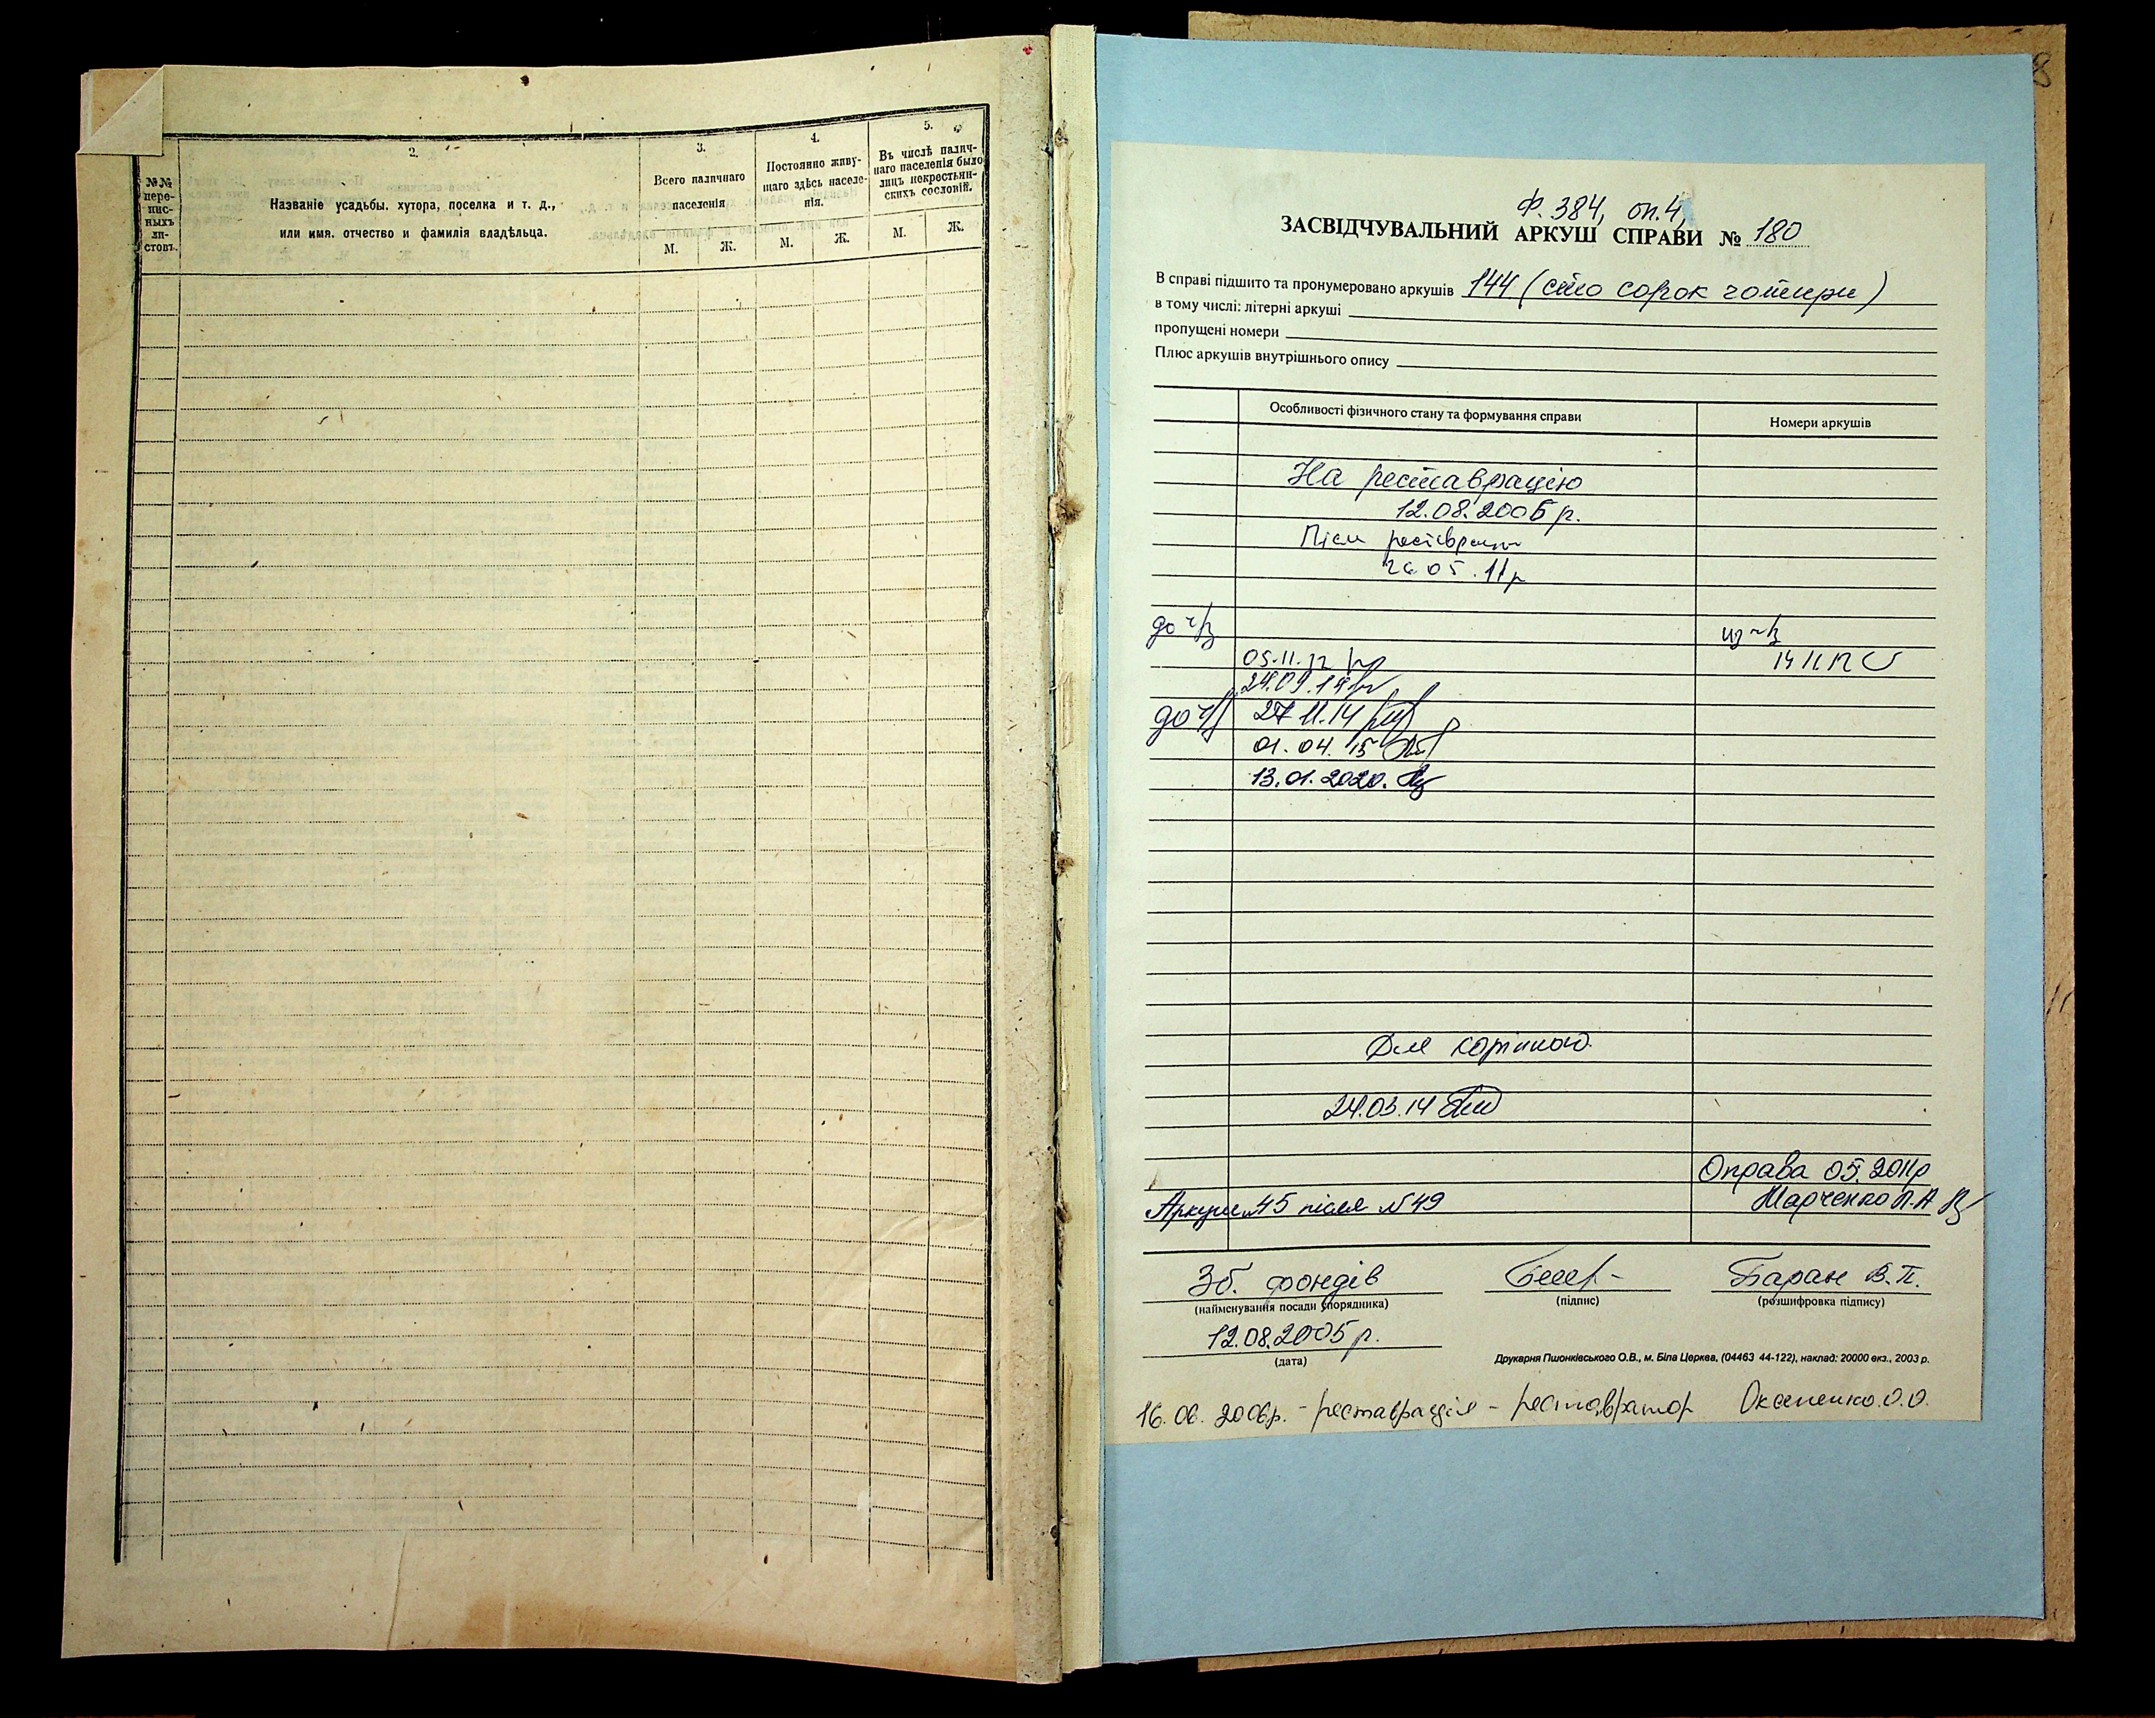 №№ пере-
пис-
ныхъ
ли-
стовъ.
2.
Названіе усадьбы, хутора, поселка и т. д.,
или имя, отчество и фамилія владѣльца.
3.
Всего наличнаго
населенія
М. Ж.
4.
Постоянно живу-
щаго здѣсь населе-
нія.
М. Ж.
5.
Въ числѣ налич-
наго населенія было
лицъ некрестьян-
скихъ сословій.
М. Ж.
Ф. 384, оп. 4,
ЗАСВІДЧУВАЛЬНИЙ АРКУШ СПРАВИ № 180
В справі підшито та пронумеровано аркушів 144 (сто сорок чотири)
в тому числі: літерні аркуші
пропущені номери
Плюс аркушів внутрішнього опису
Особливості фізичного стану та формування справи Номери аркушів
На реставрацію
12.08.2005 р.
Після реставрації
05.11р
до ч/з
05.11.12
14 11 12
24.09.14
до ч/з 27 11.14
01.04.15
13.01.2020.
Для копіювання
24.03.14
Оправа 05.2011р
Аркуш 45 після №49 Марченко Л.А
Зб. фондів Баран В.П.
(найменування посади упорядника) (підпис) (розшифровка підпису)
12.08.2005 р.
(дата)
Друкарня Пшонківського О.В., м. Біла Церква, (04463 44-122), наклад: 20000 екз., 2003 р.
16.06.2006р. - реставрація - реставратор Оксененко О.О.